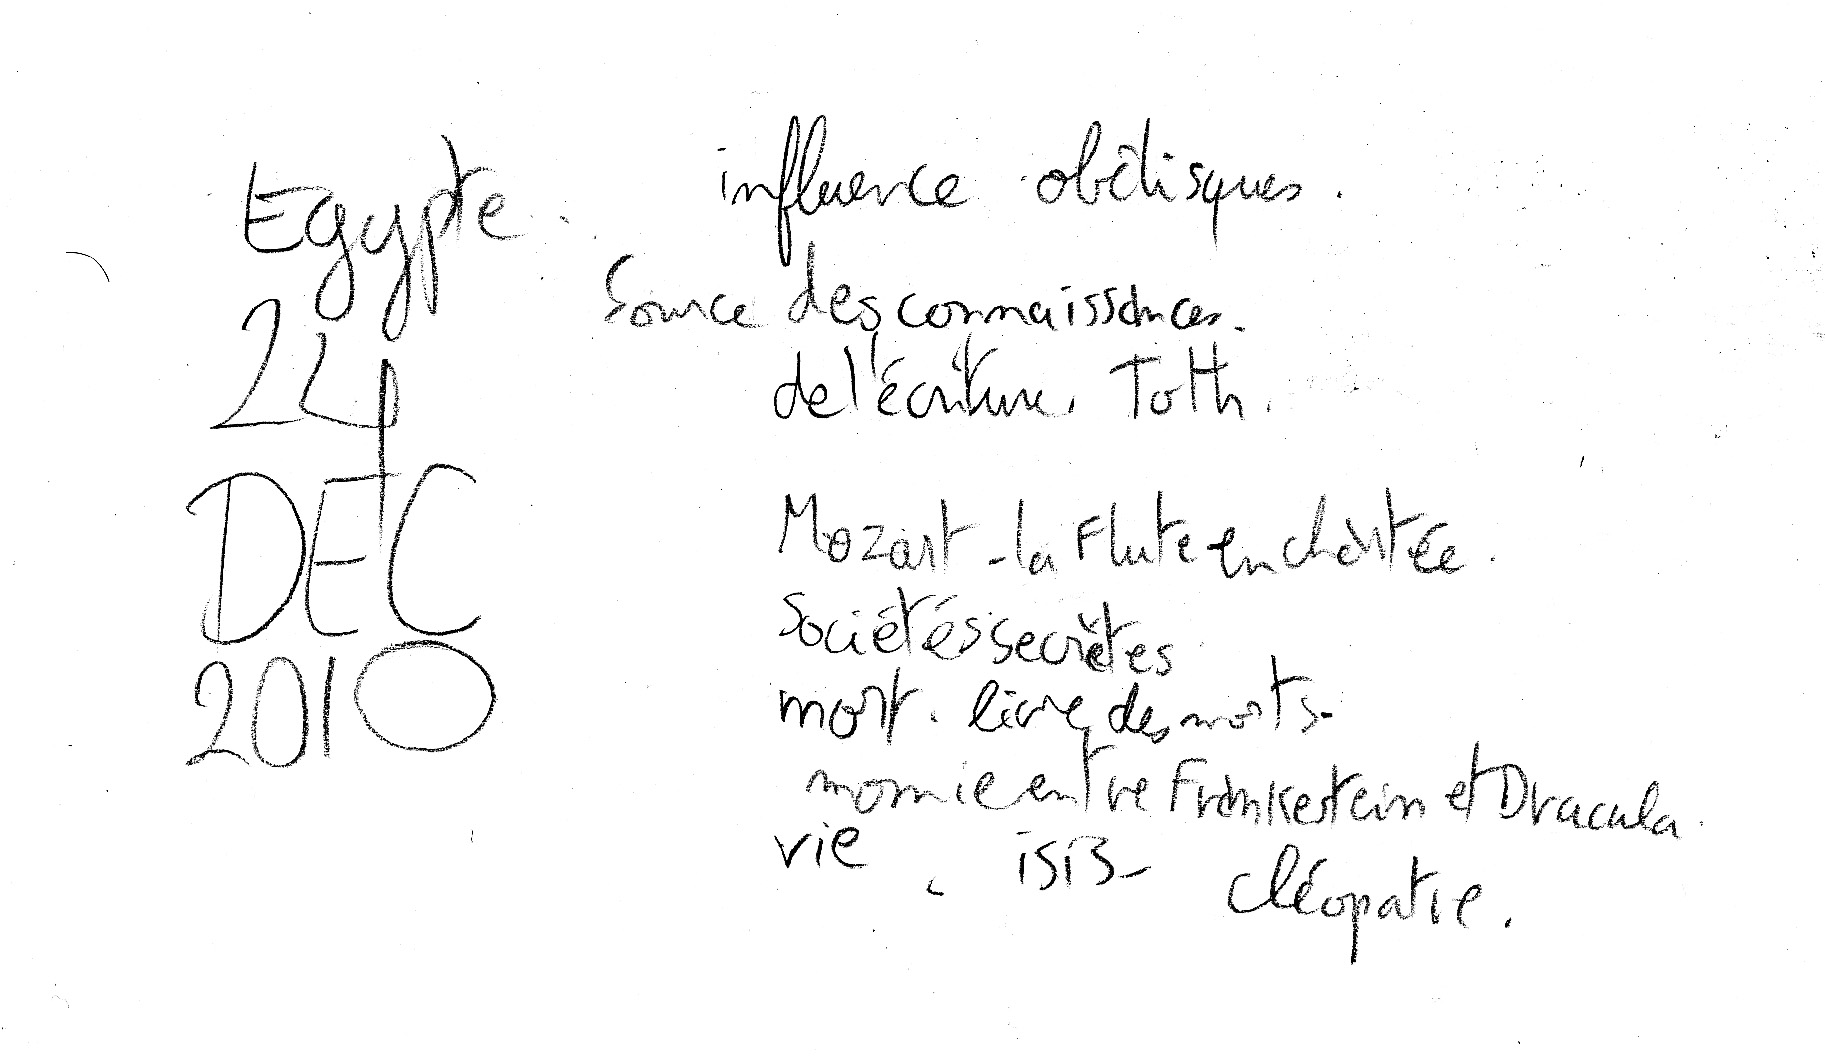 Egypte.
24
DEC
2010
influence obélisques.
Source des connaissances.
de l'écriture. Toth.
Mozart - la Flute enchantée.
Sociétés secrètes
mort. livre des morts.
momie entre Frankestein et Dracula.
vie . isis - Cléopatre.